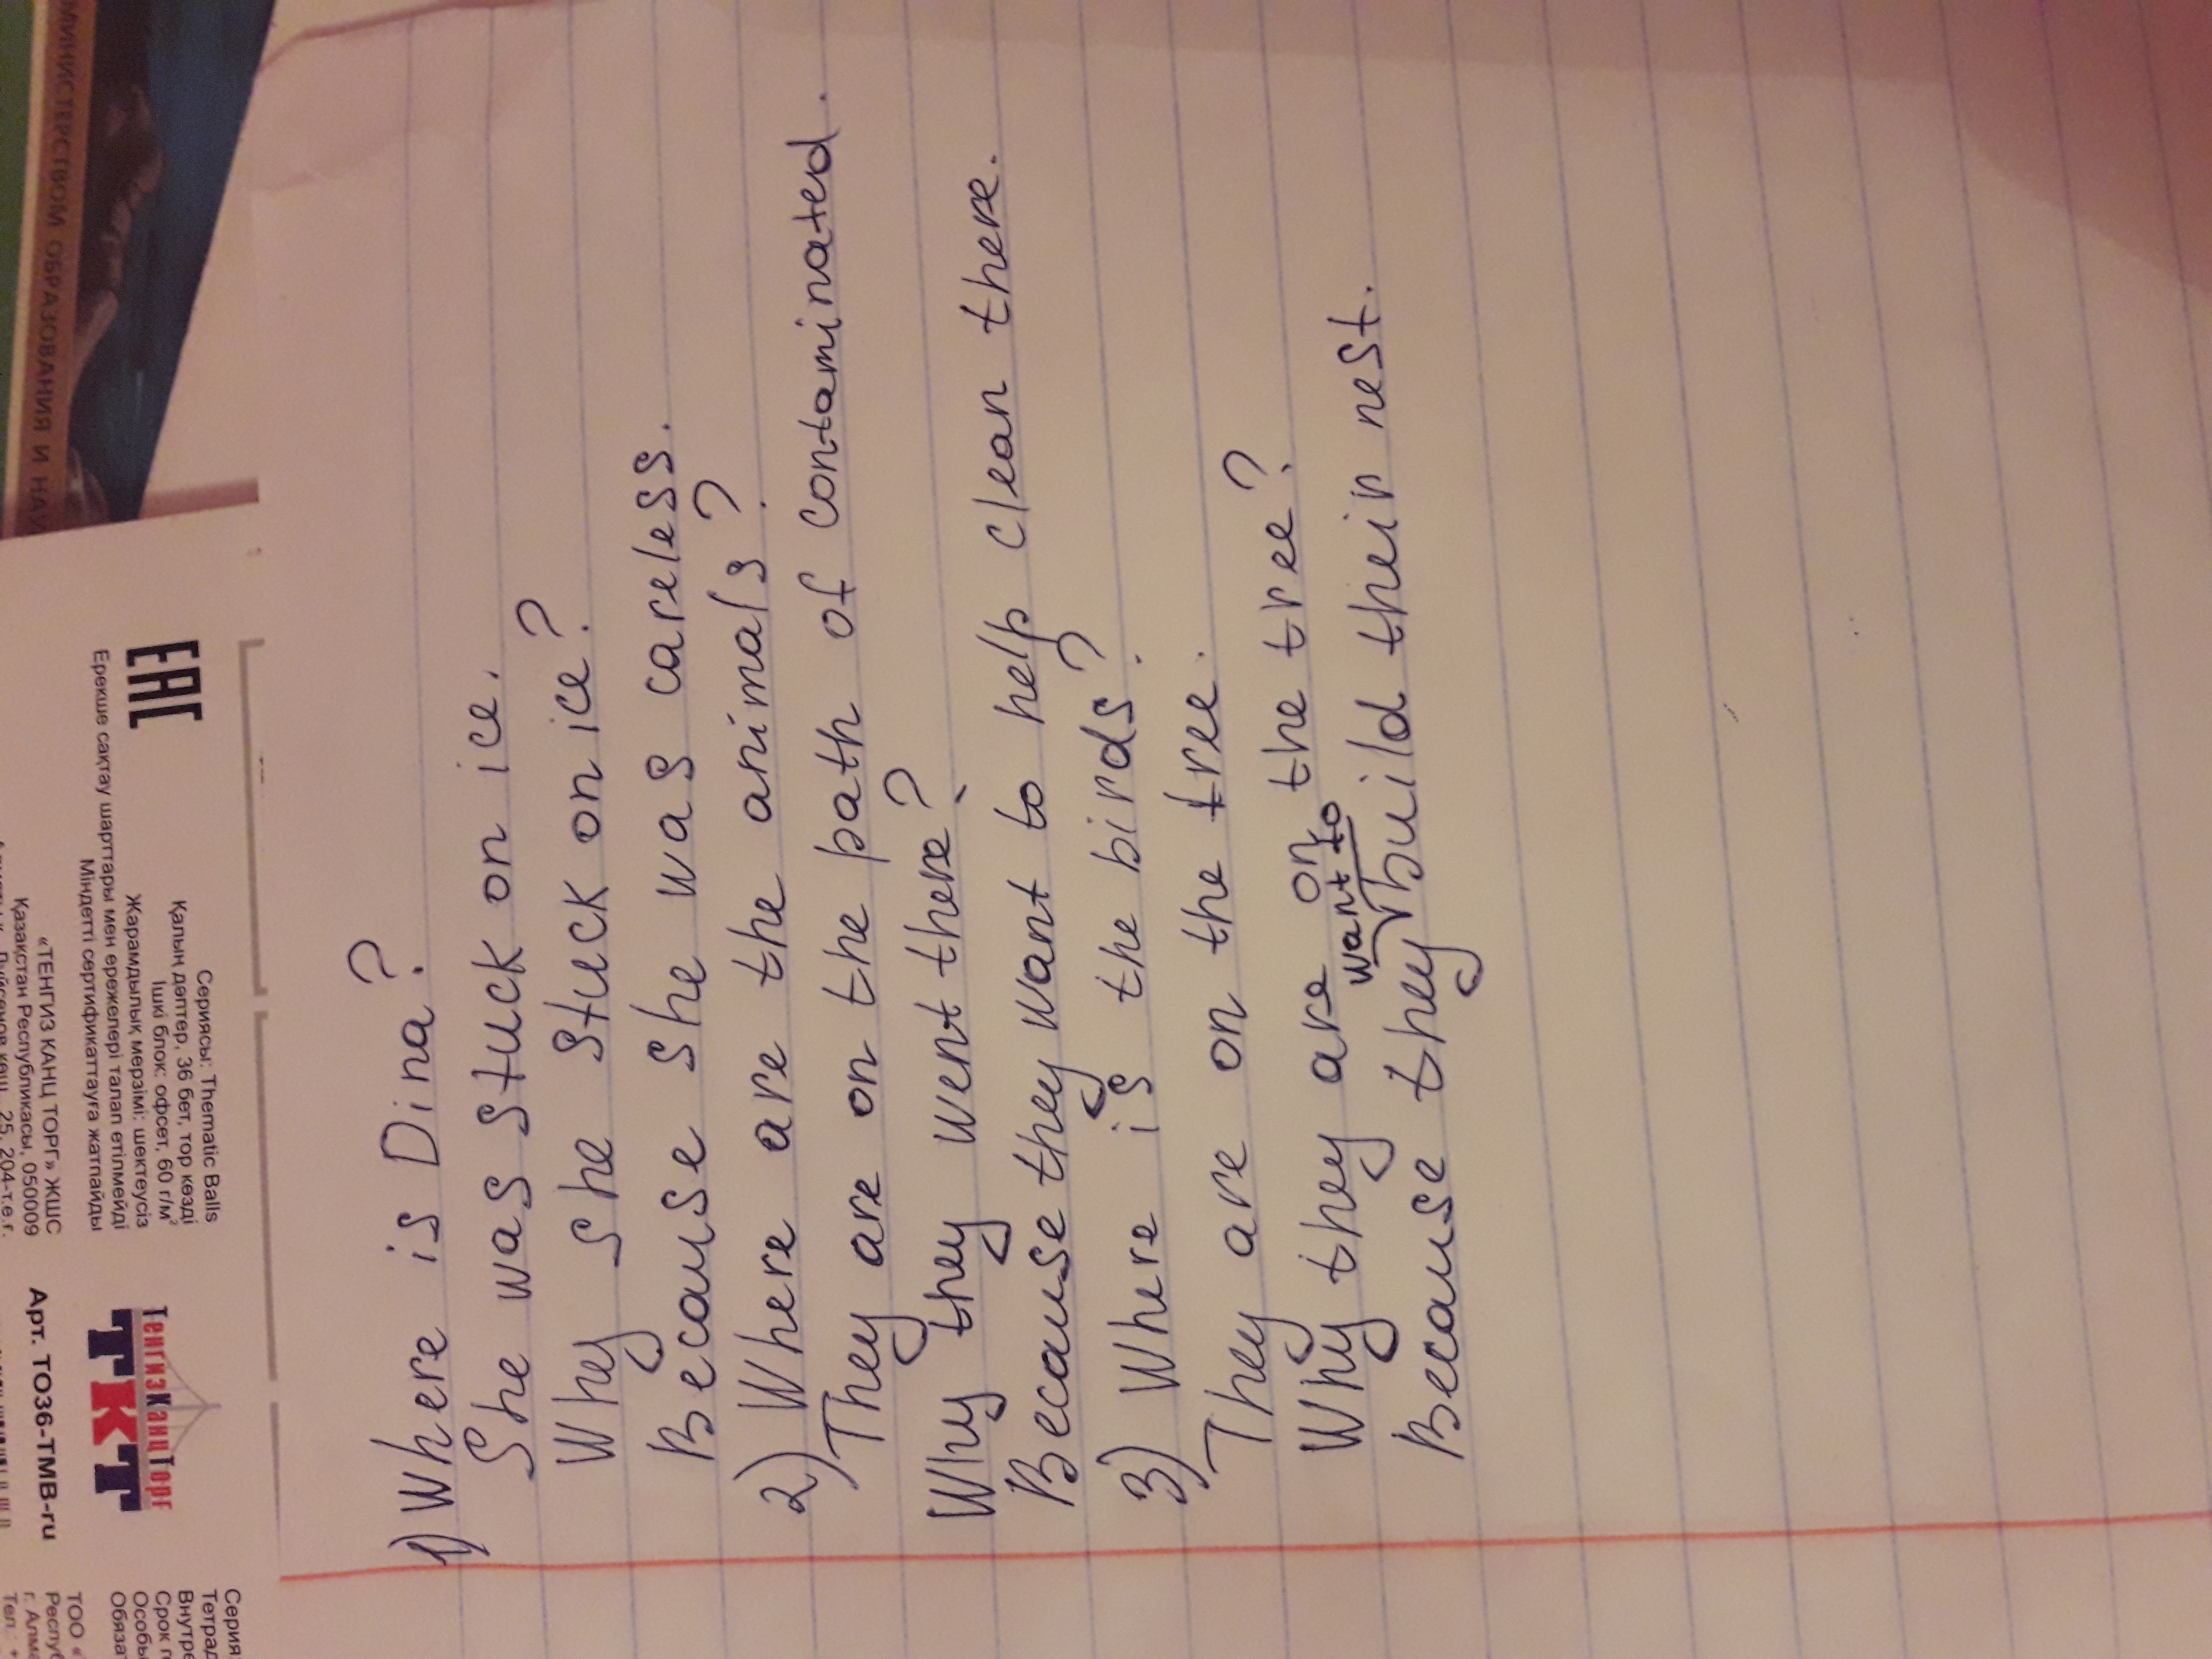 МИНИСТЕРСТВОМ ОБРАЗОВАНИЯ И НАУ
ЕАС
Ерекше сақтау шарттары мен ережелері талап етілмейді
Міндетті сертификаттауға жатпайды
Сериясы: Thematic Balls
Қалың дәптер, 36 бет, тор көзді
Ішкі блок: офсет, 60 г/м²
Жарамдылық мерзімі: шектеусіз
«ТЕНГИЗ КАНЦ ТОРГ» ЖШС
Қазақстан Республикасы, 050009
25, 204-т.е.г.
Арт. ТО36-ТМВ-ru
ТКТ
ТенгизКанцТорг
Серия:
Тетрад
Внутре
Срок г
Особы
Обязат
ТОО «
Респуб
г. Алма
Тел.: +
1) Where is Dina?
She was stuck on ice.
Why she stuck on ice?
Because she was careless.
2) Where are the animals?
They are on the path of contaminated.
Why they went there?
Because they want to help clean there.
3) Where is the birds?
They are on the tree.
Why they are on the tree?
want to
Because they build their nest.